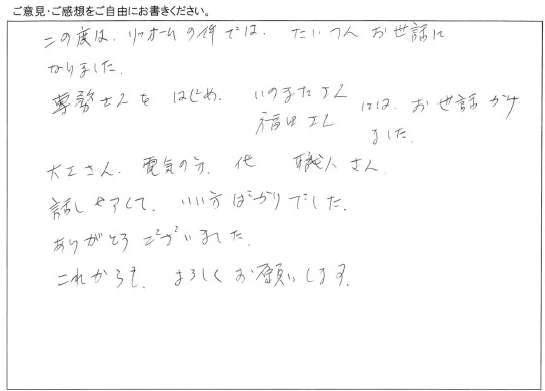 ご意見・ご感想をご自由にお書きください。
この度は、リフォームの件では、たいへんお世話に
なりました。
専務さんをはじめ、いのまたさん
福田さん には、お世話かけ
ました。
大工さん、電気の方、他 職人さん
話しやすくて、いい方ばかりでした。
ありがとうございました。
これからも、よろしくお願いします。